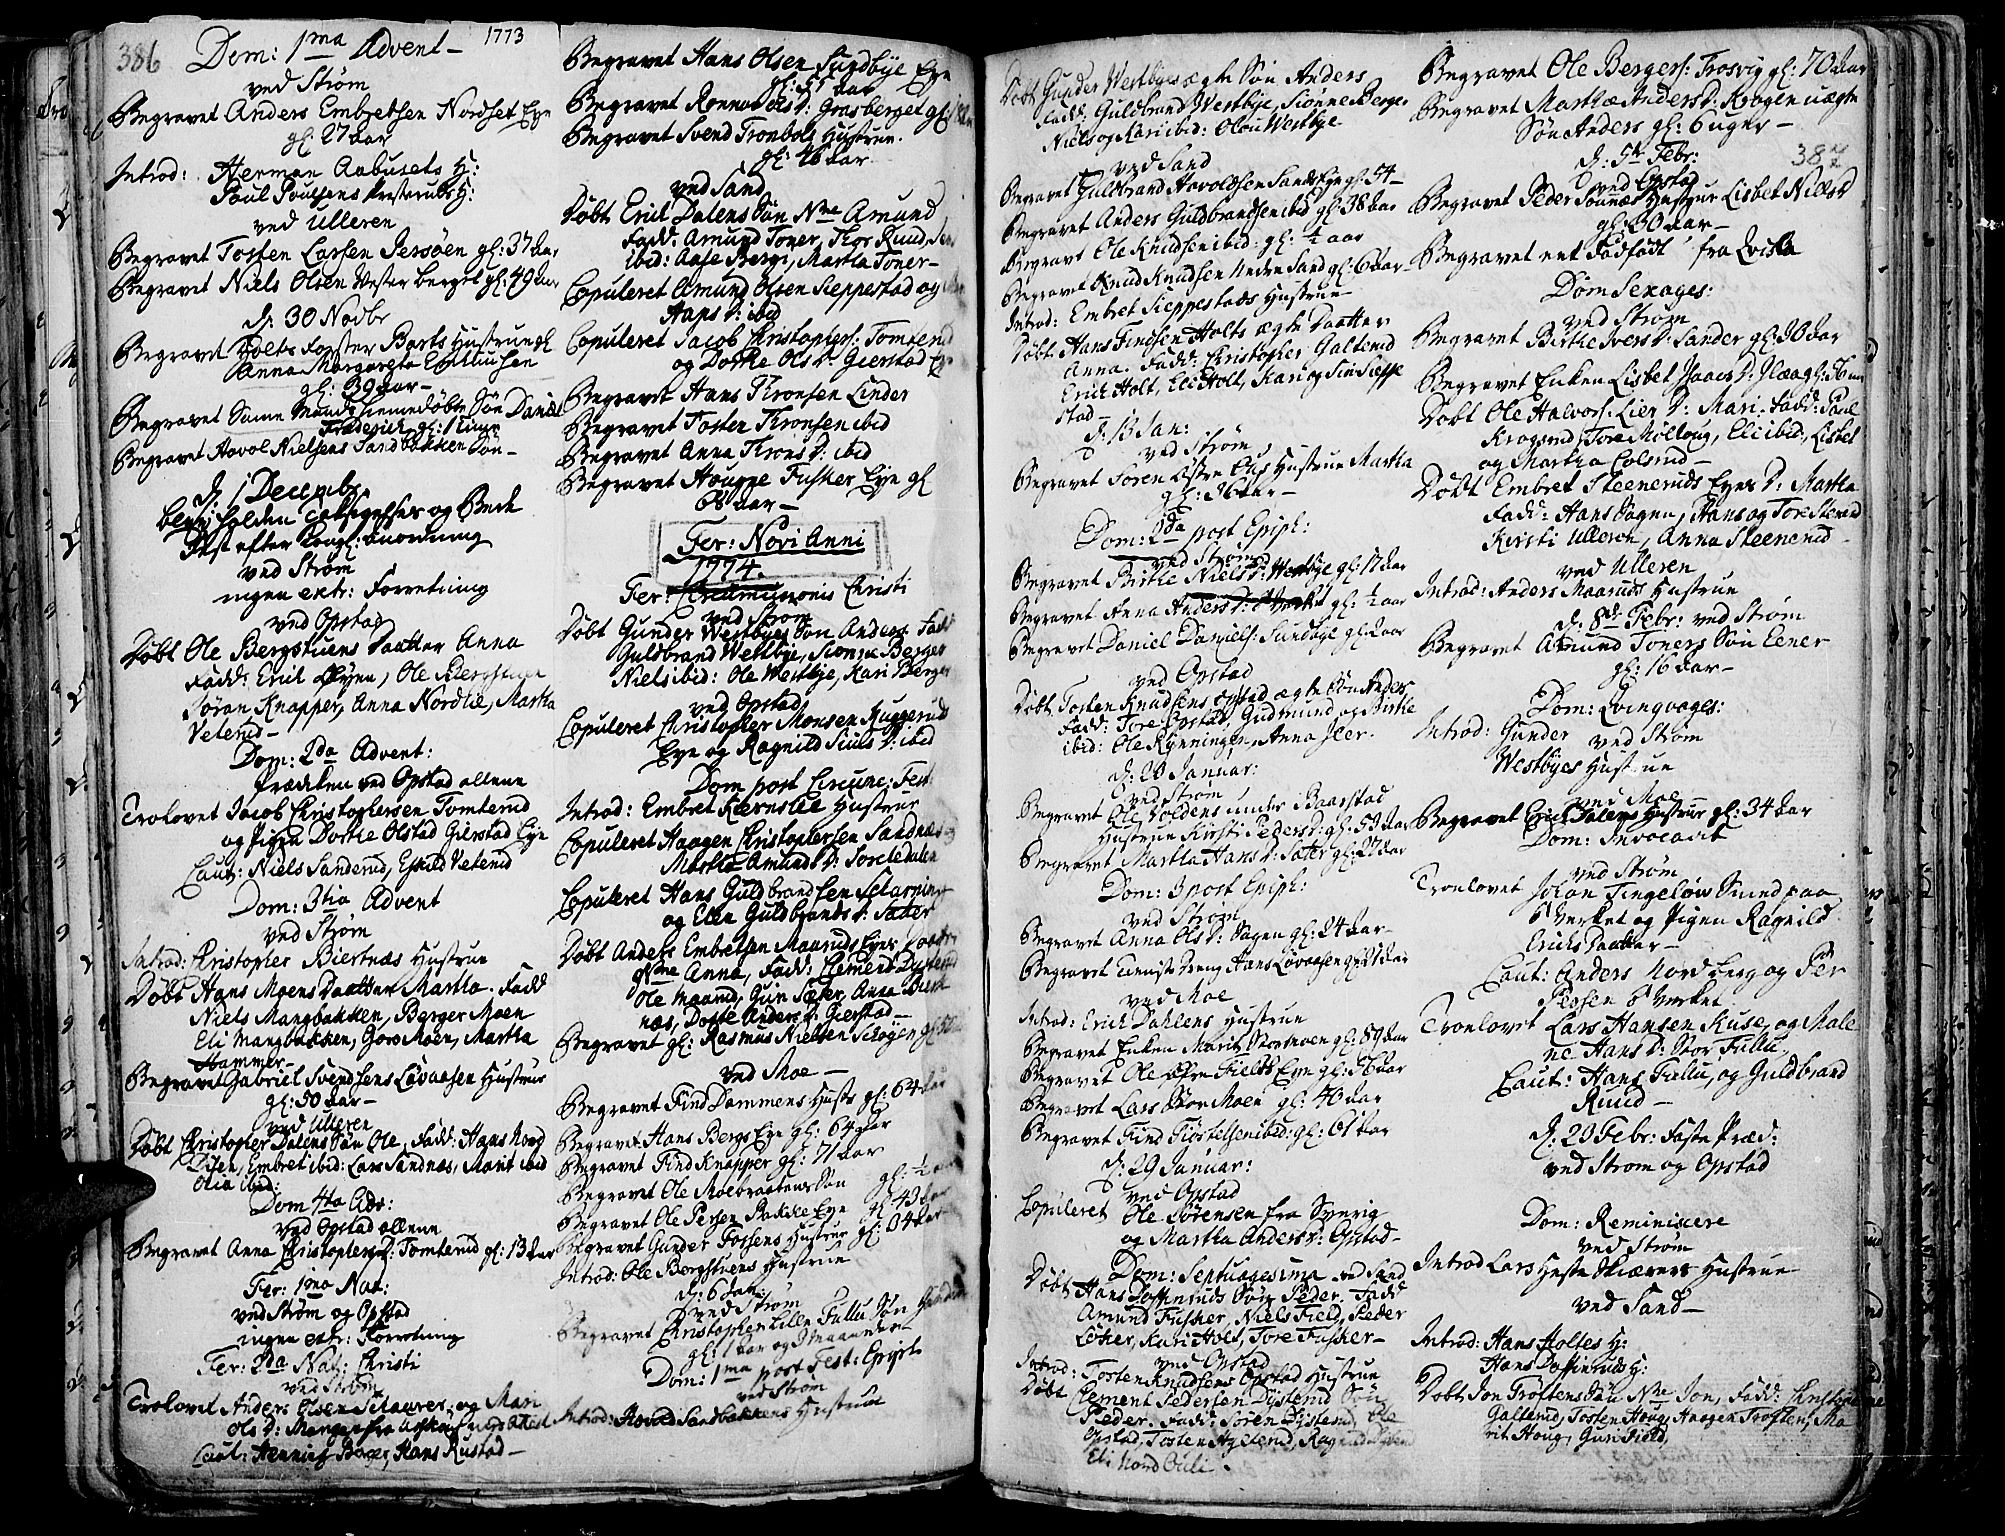 386
Dom: 1ma Advent — 1773
ved Strøm
Begravet Anders Embretsen Nordset Eye
gl: 27 aar
Introd: Herman Aabusets H:
Paul Poulsens Prestruds H:
ved Ulleren
Begravet Tosten Larsen Jersøen gl: 37 aar
Begravet Niels Olsen Vesterberget gl: 49 aar
d: 30 Novbr
Begravet Holts Forster Barts Hustrue gl
Anna Margareta
gl: 39 aar —
Begravet Samme Mands hiemmedøbte Søn Daniel
Frederich, gl: 1 time
Begravet Havol Nielsens Sandbakken Søn —
d: 1 Decembr
blev holden Taksigelses og Bede
Fest efter Kongl: Anordning
ved Strøm
ingen extr: Forretning
ved Opstad
Døbt Ole Bergstuens Daatter Anna
Fadd: Erich Øyen, Ole Bergstuen
Søran Knapper, Anna Nordlie, Martha
Veterud —
Dom: 2da Advent:
Prædiken ved Opstad allene
Trolovet Jacob Christophersen Tomterud
og Pigen Dorthe Olsdtr Gierstad Eye
Caut: Niels Sanderud, Eskild Veterud
Dom: 3tia Advent
ved Strøm
Introd: Christopher Biertnæs Hustrue
Døbt Hans Moens Daatter Martha. Fadd
Niels Mangbakken, Berger Moen
Eli Mangbakken, Goro Moen, Martha
Hammer —
Begravet Gabriel Svendsens Løvaasen Hustrue
gl: 50 aar —
ved Ulleren
Døbt Christopher Dalens Søn Ole, Fadd: Hans Nord
Disen, Embret ibid: Lars Sandnæs, Marit ibid
Olia ibid:
Dom 4ta Adv:
ved Opstad allene
Begravet Anna Christophersd: Tomterud gl: 13 aar
Fer: 1ma Nat:
ved Strøm og Opstad
ingen extr: Forretning
Fer: 2da Nat: Christi
ved Strøm
Trolovet Anders Olsen Schaurer, og Mari
Ols D: Mangen fra
Caut: Henrich Berger, Hans Rustad —
Begravet Hans Olsen Sundbye Eye
gl: 57 aar
Begravet Ronnau Ols D: Grasberget gl:
Begravet Svend Tronbøls Hustrue.
gl: 46 aar
ved Sand
Døbt Erich Dalens Søn Nme Amund
Fadd: Amund Toner, Thor Ruud,
ibid: Aase Bergi, Martha Toner —
Copuleret Amund Olsen Sieppestad og
Hans D: ibid
Copuleret Jacob Christophers: Tomterud
og Dorthe Ols D: Gierstad Eye
Begravet Hans Thronsen Linder
Begravet Tosten Thronsen ibid
Begravet Anna Throns D: ibid
Begravet Houge Fusker Eye gl
68 aar —
Fer: Novi Anni
1774.
Fer: Circumcisionis Christi
ved Strøm
Døbt Gunder Westbyes Søn Anders Fadd
Guldbrand Westbye, Sionne Berger
Niels ibid: Ole Westbye, Kari Berger
ved Opstad
Copuleret Christopher Monsen Huggerud
Eye og Ragnild Siuls D: ibid
Dom post Circumc: Fest:
Introd: Embret Kiernslie Hustrue
Copuleret Haagen Christophersen Sandnæs og
Martha Amunds D: Soreledalen
Copuleret Hans Guldbrandsen Scharning
og Elen Guldbrands D: Sætter
Døbt Anders Embretsen Maaruds Eyes Daatter
Nme Anna, Fadd: Clement Dysterud
Ole Maarud, Guri Sæter, Anna Biert
næs, Dorthe Anders D: Gierstad —
Begravet gl: Rasmus Nielsen Schøyen gl:
ved Moe —
Begravet Find Dammens Husts gl: 64 aar
Begravet Hans Bergs Eye gl: 64 aar
Begravet Find Knapper gl: 71 aar
Begravet Ole Moebraatens Søn gl: ½ aar
Begravet Ole Persen Bakke Eye gl: 43 aar
Begravet Gunder Fossens Hustrue gl: 64 aar
Introd: Ole Bergstuens Hustrue
d: 6 Jan:
ved Strøm
Begravet Christopher Lille Fullu Søn
gl: 1 aar og 3 Maaneder
Dom: 1ma post Fest: Epiph
ved Strøm
Introd: Havol Sandbakkens Hustrue
Døbt Gunder Westbyes ægte Søn Anders
Fadd: Guldbrand Westbye, Sionne Berger
Niels og Kari ibid: Olau Westbye
ved Sand
Begravet Guldbrand Havoldsen Sands Eye gl: 54 —
Begravet Anders Guldbrandsen ibid gl: 38 aar
Begravet Ole Knudsen ibid: gl: ½ aar
Begravet Knud Knudsen Nedre Sand gl: 6 aar —
Introd: Embret Sieppestads Hustrue
Døbt Hans Findsen Holts ægte Daatter
Anna. Fadd: Christopher Galterud
Erich Holt, Eli Holt, Kari og Siri Sieppe
stad —
d: 13 Jan:
ved Strøm
Begravet Søren Østre Ous Hustrue Martha
gl: 36 aar —
Dom: 2da post Epiph:
ved Strøm
Begravet Birthe Niels D: Westbye gl: 17 aar
Begravet Anna Anders D: gl: ½ aar
Begravet Daniel Daniels: Sundbye gl: aar
ved Opstad
Døbt Tosten Knudsens Opstad ægte Søn Anders
Fadd: Tore Opstad, Gudmund og Birthe
ibid: Ole Rynningen, Anna Iler.
d: 20 Januar:
ved Strøm
Begravet Ole Holdens under Baarstad
Hustrue Kirsti Peders D: gl: 53 aar
Begravet Martha Hans D: Sæter gl: 27 aar
Dom: 3 post Epiph:
ved Strøm
Begravet Anna Ols D: Sagen gl: 24 aar —
Begravet Tieniste Dreng Hans Løvaasen gl: 21 aar
ved Moe
Introd: Erich Dahlens Hustrue
Begravet Enken Marit Stormoen gl: 89 aar
Begravet Ole Øfre Fields Eye gl: 56 aar
Begravet Lars Stor Moen gl: 40 aar
Begravet Find Kiøstelsen ibid: gl: 61 aar
d: 29 Januar:
ved Opstad
Copuleret Ole Sørensen fra Sverig
og Martha Anders D: Opstad —
Dom: Septuagesima ved Sand
Døbt Hans Doffinruds Søn Peder. Fadd
Amund Fusker, Niels Field, Peder
Løher, Kari Holt, Tore Fusker —
ved Opstad
Introd: Tosten Knudsens Opstad Hustrue
Døbt Clement Pedersen Dysterud Søn
Peder. Fadd: Søren Dysterud, Ole
Opstad, Tosten Hylterud, Ragnild
Eli Nord Ouli.
Begravet Ole Bergers: Frosvig gl: 70 aar
Begravet Marthæ Anders D: Kragen uægte
Søn Anders gl: 6 uger —
387
d: 5te Febr:
ved Opstad
Begravet Peder Sounæs Hustrue Lisbet Niels D
gl: 30 aar —
Begravet ent Dødfødt fra Qvisla
Dom Sexages:
ved Strøm
Begravet Birthe Ivers D: Sander gl: 30 aar
Begravet Enken Lisbet Isaacs D: Ilaa gl: 76 aar
Døbt Ole Halvors: Lier D: Mari. Fadd: Paul
Krogsrud, Tore Molloug, Eli ibid, Lisbet
og Martha Colsrud —
Døbt Embret Steeneruds Eyes D: Martha
Fadd: Hans Sagen, Hans og Tore Stenerud
Kirsti Ulleren, Anna Steenerud —
ved Ulleren
Introd: Anders Maaruds Hustrue
d: 8de Febr: ved Strøm
Begravet Amund Toners Søn Eener
gl: 16 aar —
Dom: Qvinqvages:
ved Strøm
Introd: Gunder
Westbyes Hustrue
ved Moe
Begravet Erich Dalens Hustrue gl: 34 aar
Dom: Invocavit
ved Strøm
Troelovet Johan Tingeløw Smed paa
Verket og Pigen Ragnild
Erichs Daatter —
Caut: Anders Nordberg og Per
Persen Verket
Troelovet Lars Hansen Kuse, og Male
ne Hans D: Stor Fullu,
Caut: Hans Fullu, og Guldbrand
Ruud —
d: 20 Febr: Faste Præd:
ved Strøm og Opstad
Dom: Reminiscere
ved Strøm
Introd Lars Heste Skiærers Hustrue
ved Sand —
Introd: Hans Holtes H:
Hans Doffinruds H:
Døbt Jon Trøftens Søn Nme Jon, Fadd: Christopher
Galterud, Tosten Houg, Haagen Trøften, Ma
rit Houg, Guri Field,